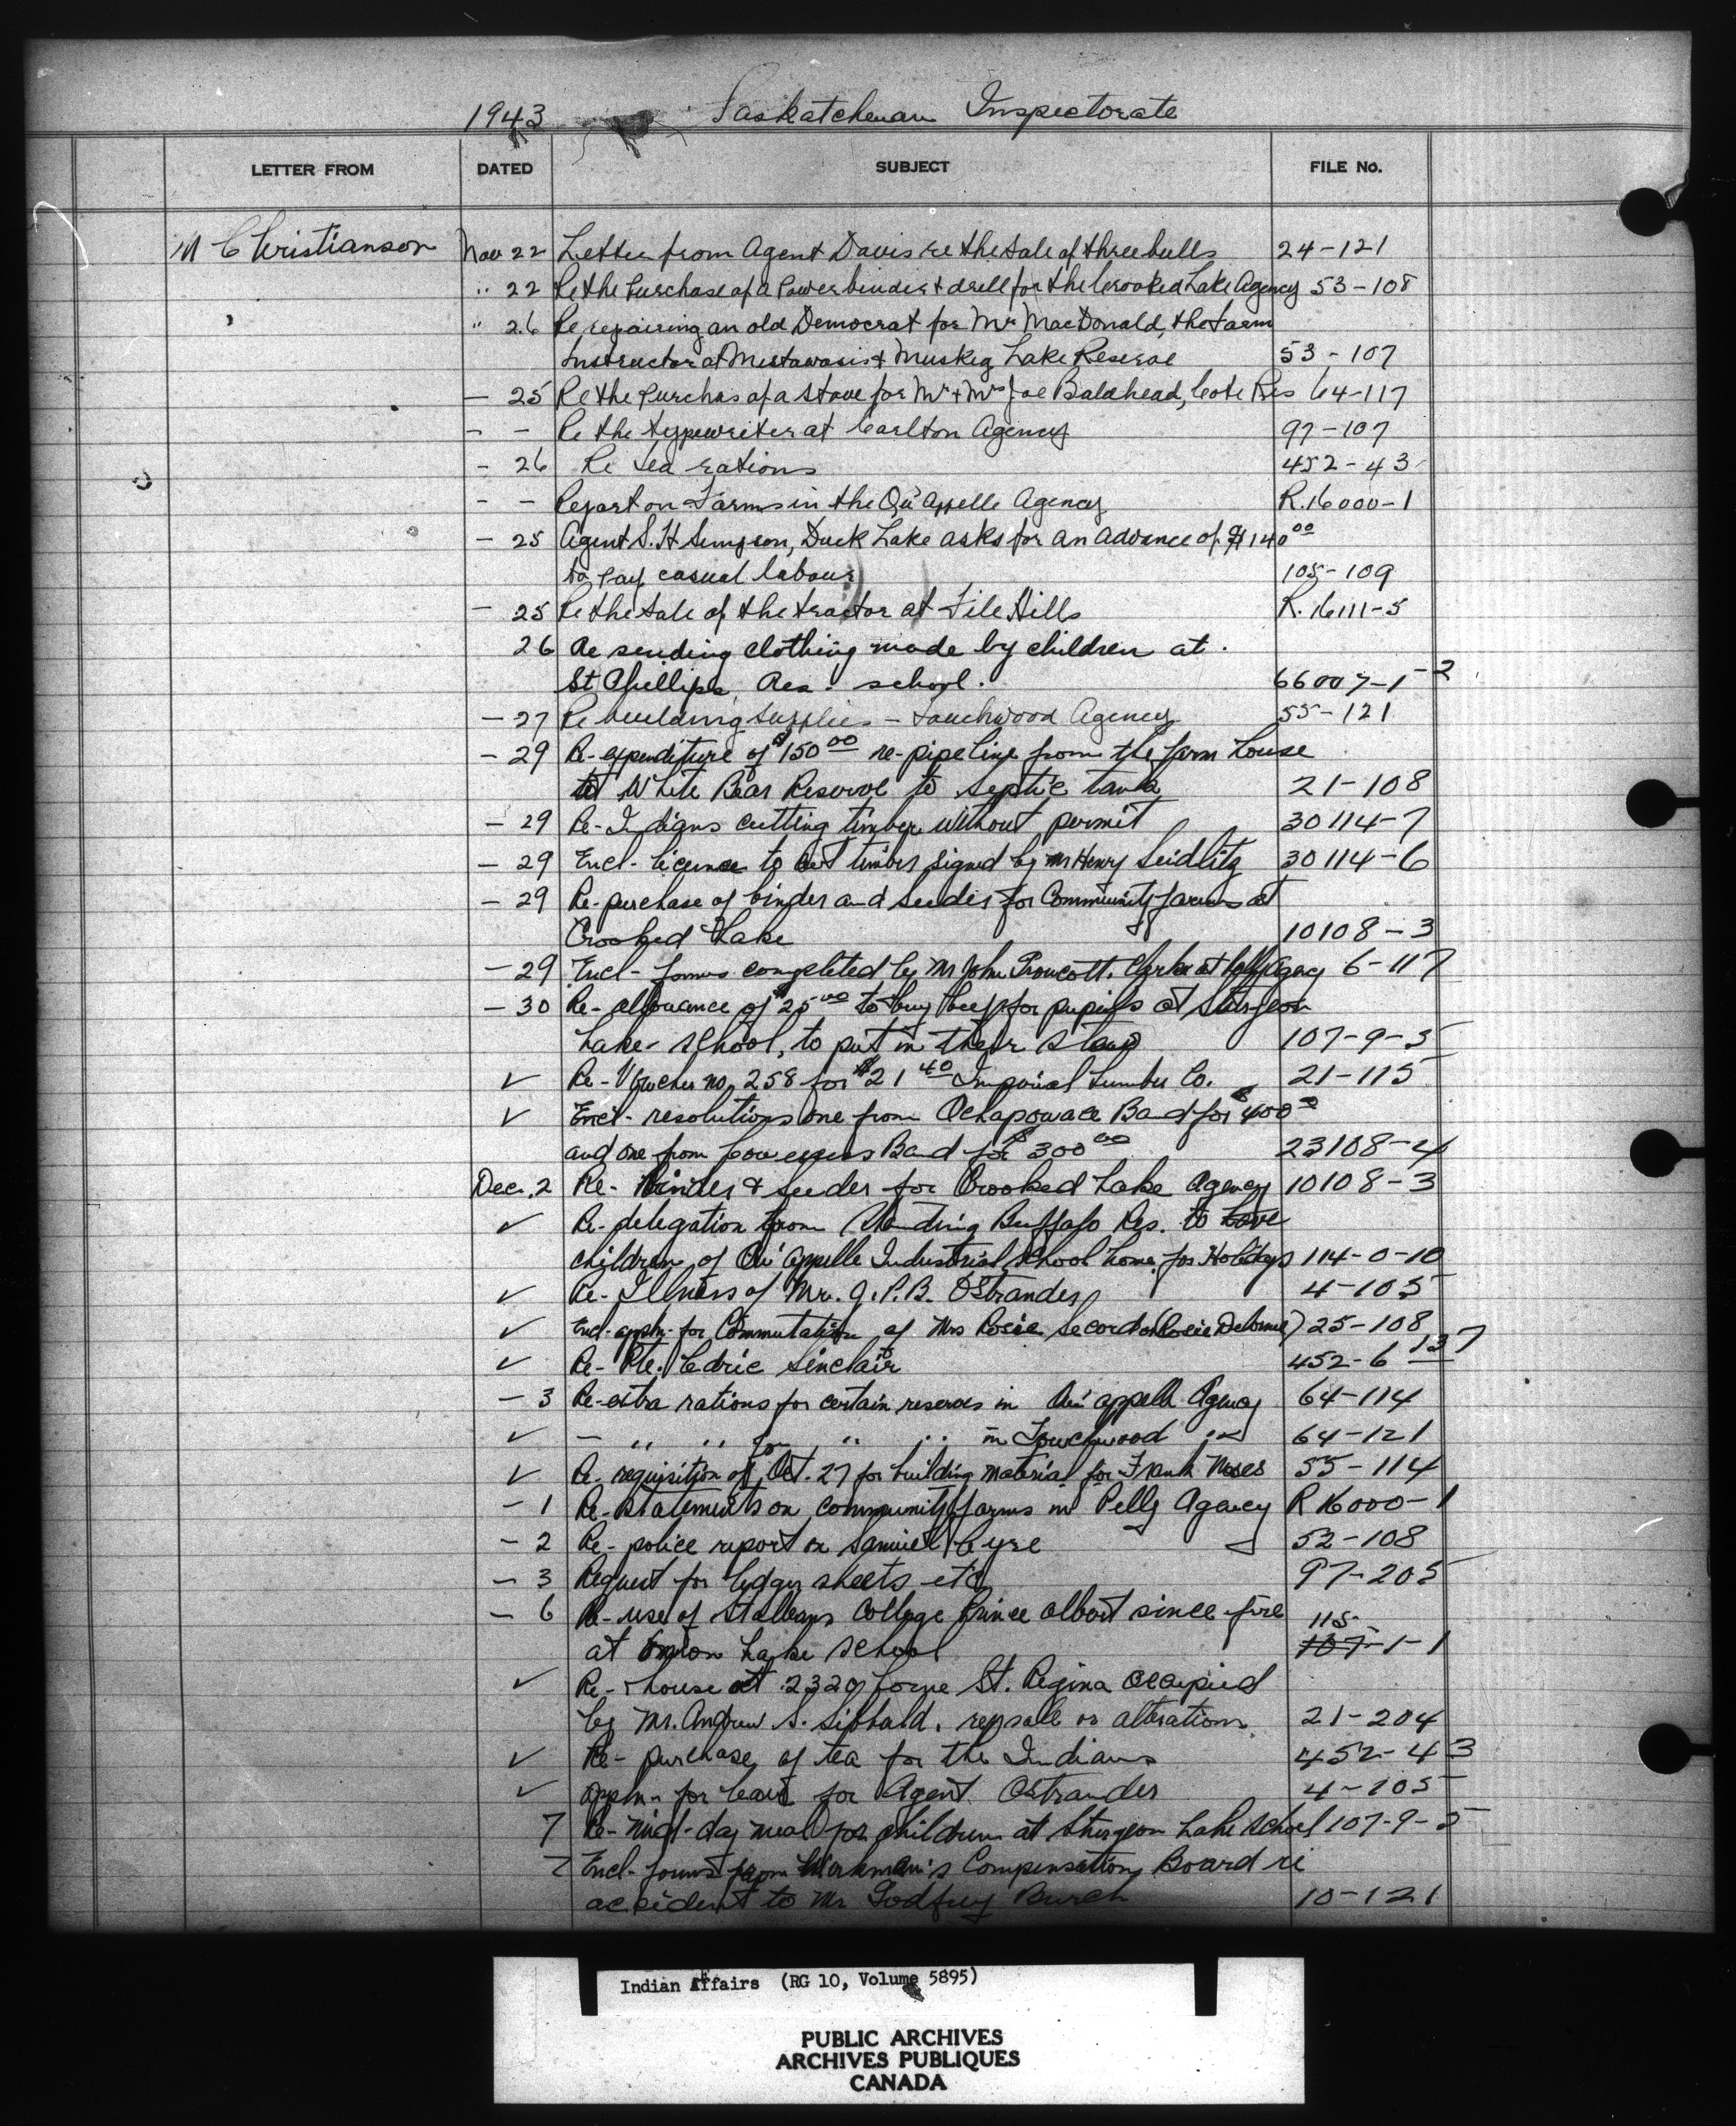 1943 Saskatchewan Inspectorate
LETTER FROM DATED SUBJECT FILE No.
M Christianson Nov 22 Letter from Agent Davis re the sale of three bulls 24-121
" 22 Re the Purchase of a Power binder & drill for the Crooked Lake Agency 53-108
" 26 Re repairing an old Democrat for Mr MacDonald, the farm
Instructor at Mistawasis & Muskeg Lake Reserve 53-107
- 25 Re the Purchas of a stove for Mr + Mrs Joe Baldhead, Cote Res 64-117
- - Re the typewriter at Carlton Agency 97-107
- 26 Re tea rations 452-43
- - Report on Farms in the Qu'Appelle Agency R.16000-1
- 25 Agent S. H. Simpson, Duck Lake asks for an advance of $140 00
to pay casual labour 105-109
- 25 Re the sale of the tractor at File Hills R.16111-5
26 Re sending clothing made by children at
St Phillips, Res. school. 66007-1-2
- 27 Re building supplies - Touchwood Agency 55-121
- 29 Re-expenditure of $150 00 re-pipe line from the farm house
at White Bear Reserve to septic tank 21-108
- 29 Re-Indians cutting timber without permit 30114-7
- 29 Encl- licence to cut timber signed by Mr Henry Seidlitz 30114-6
- 29 Re-purchase of binder and seeder for Community farms at
Crooked Lake 10108-3
- 29 Encl- forms completed by Mr John Clerk at Pelly Agency 6-117
- 30 Re- allowance of $25 00 to buy beef for pupils at Sturgeon
Lake- school, to put in their stew 107-9-5
✓ Re-Voucher no. 258 for $21 40 Imperial Lumber Co. 21-115
✓ Encl- resolutions one from Ochapowace Band for $400 00
and one from Cowesses Band for $300 00 23108-4
Dec. 2 Re- Binder & seeder for Crooked Lake Agency 10108-3
✓ Re-delegation from Standing Buffalo Res. to have
children of Qu'Appelle Industrial School home for Holidays 114-0-10
✓ Re- Illness of Mr. J. P. B. Ostrander 4-105
✓ Encl-appln-for Commutation of Mrs Rosie Secord (Rosie Delorme) 25-108
✓ Re- Pte. Cedric Sinclair 452-6 137
- 3 Re-extra rations for certain reserves in Qu'appelle Agency 64-114
✓ - " " for " " in Touchwood " 64-121
✓ Re- requisition of Oct. 27 for building material for Frank Moses 55-114
- 1 Re-statements on community farms in Pelly Agency R 16000-1
- 2 Re- police report on Samuel Cyre 52-108
- 3 Request for ledger sheets etc 97-205
- 6 Re-use of St Albans College Prince Albert since fire 115
at Onion Lake School 107-1-1
✓ Re- house at 2320 Lorne St. Regina occupied
by Mr. Andrew S. Sibbald, re sale or alteration 21-204
✓ Re- purchase of tea for the Indians 452-43
✓ Appln- for leave for Agent Ostrander 4-105
7 Re-mid-day meal for children at Sturgeon Lake School 107-9-5
7 Encl- forms from Workman's Compensation Board re
accident to Mr Godfrey Burch 10-121
Indian Affairs (RG 10, Volume 5895)
PUBLIC ARCHIVES
ARCHIVES PUBLIQUES
CANADA